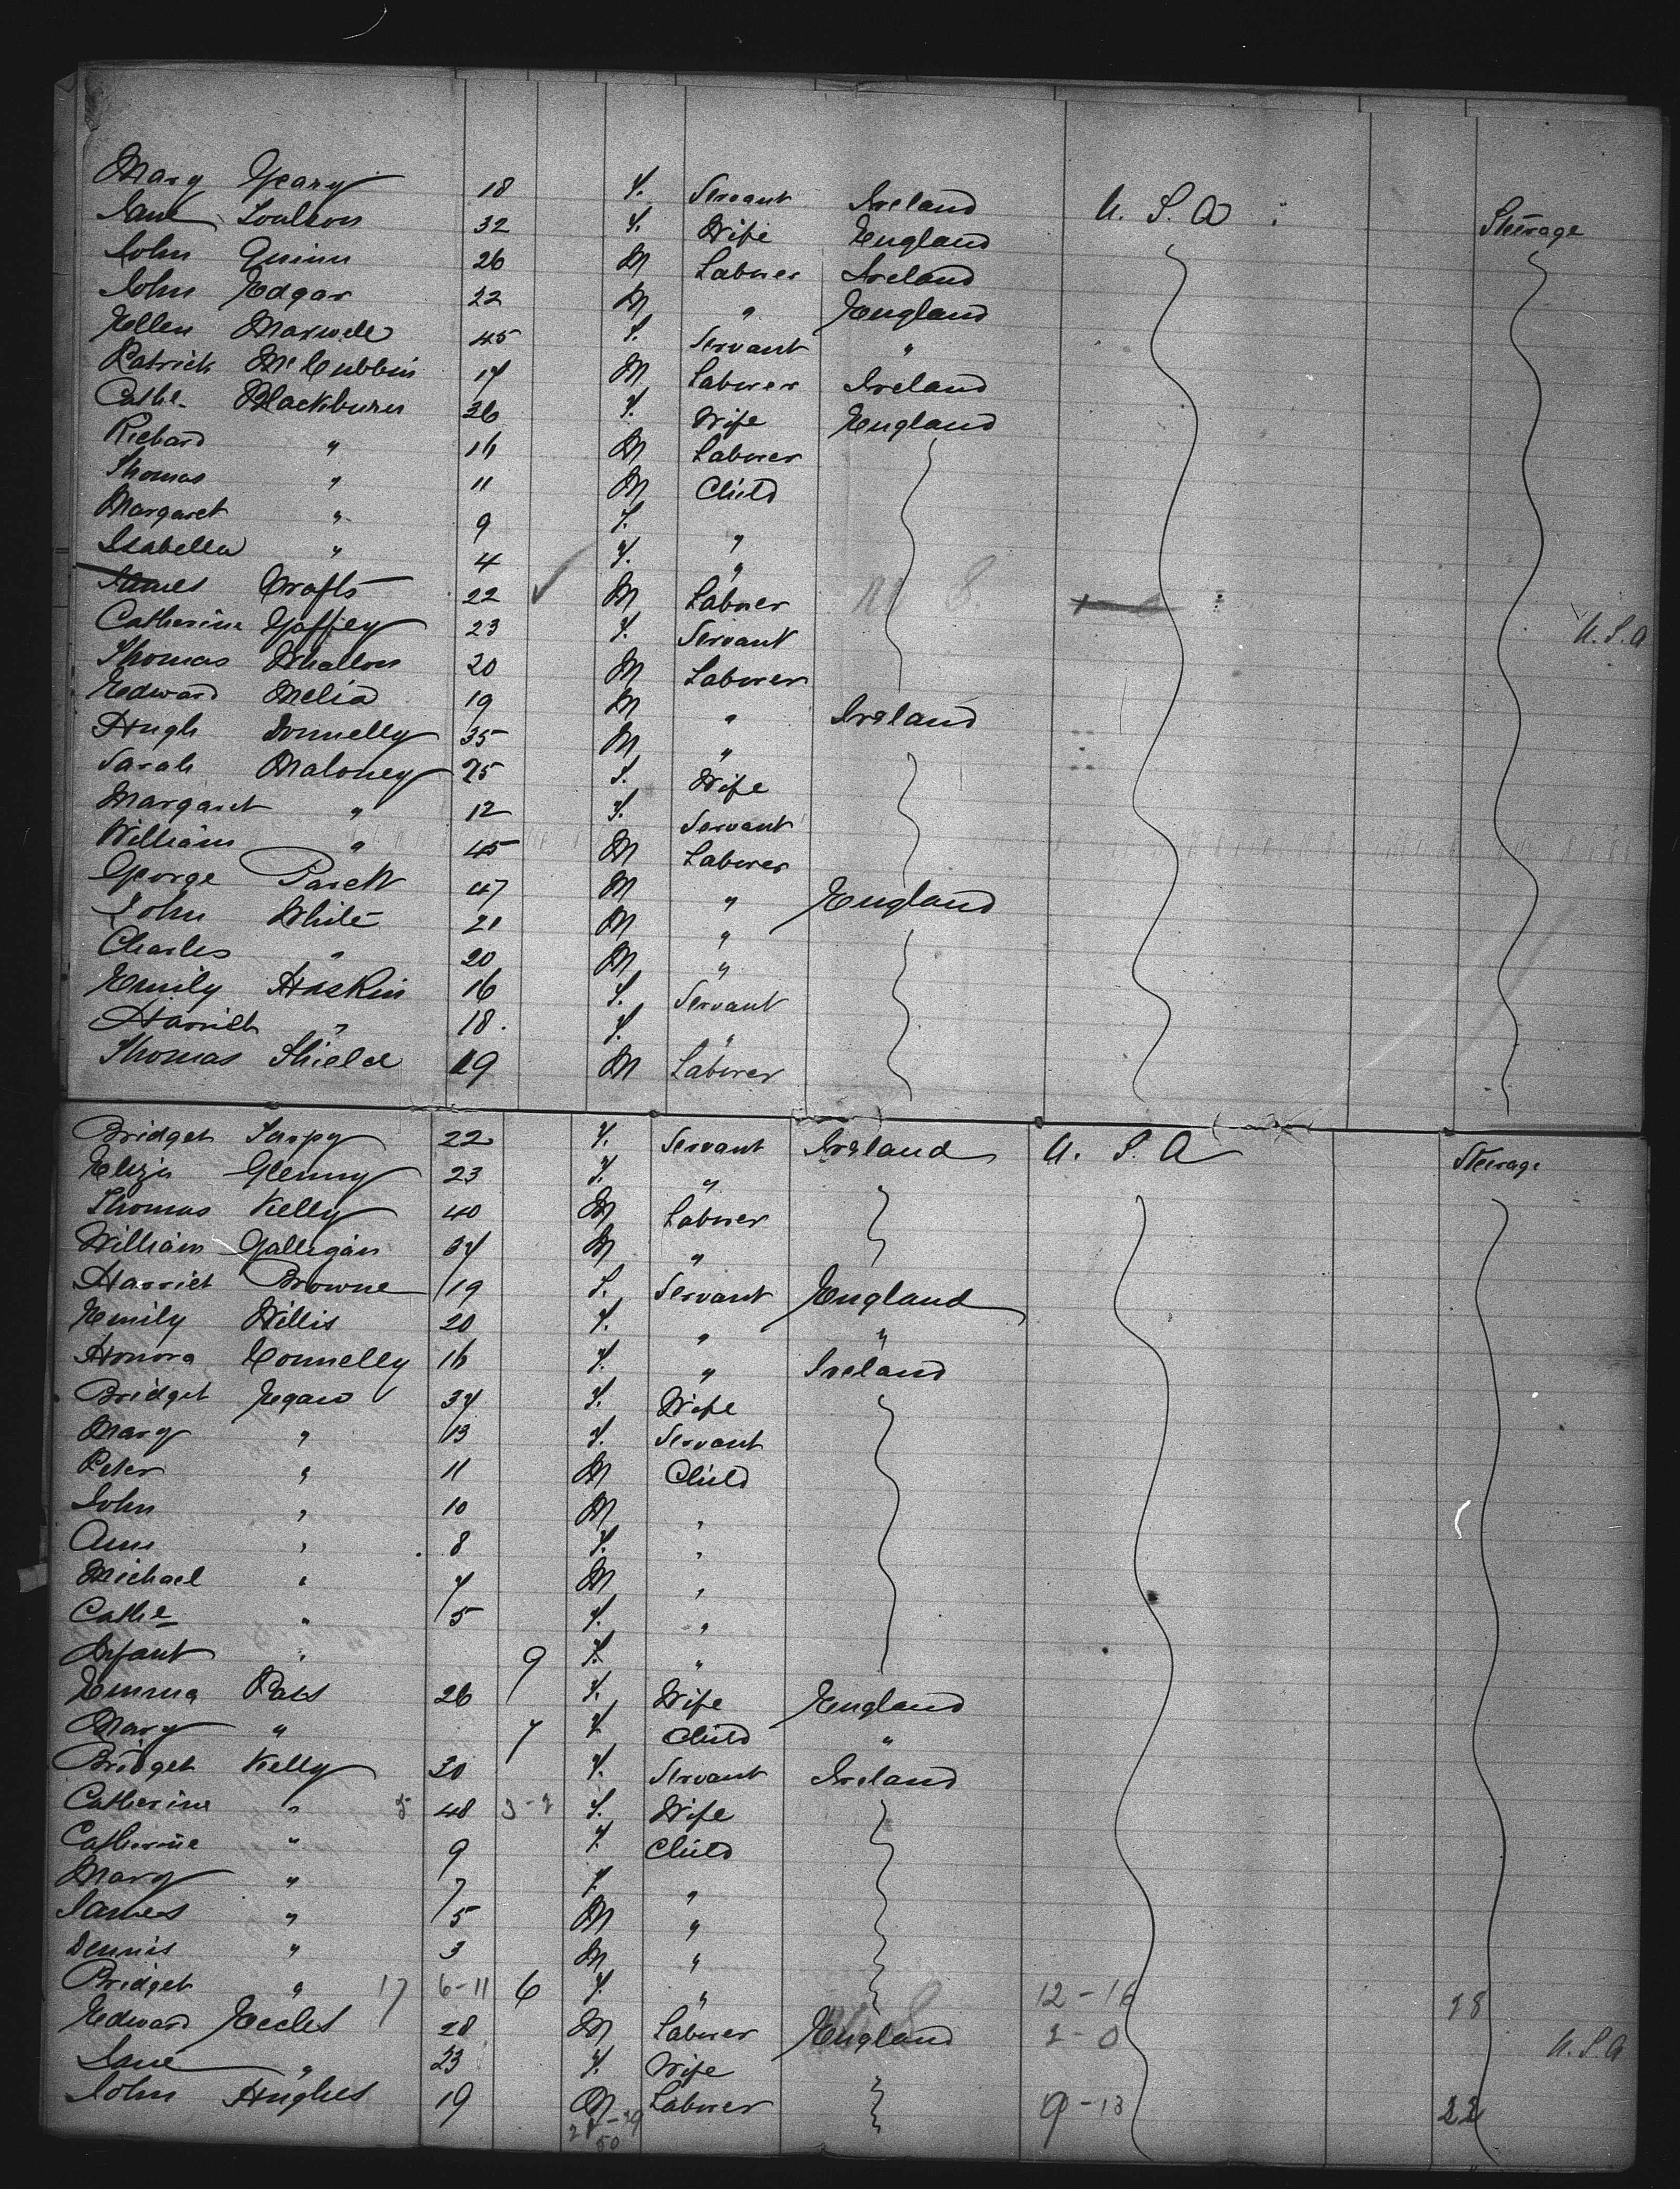 Mary Geary 18 F. Servant Ireland U. S. A Steerage
Jane 32 F. Wife England
John Quinn 26 M Laborer Ireland
John Edgar 22 M " England
Ellen Maxwell 45 F. Servant "
Patrick McCubbin 17 M Laborer Ireland
Cathe Blackburn 36 F. Wife England
Richard " 16 M Laborer
Thomas " 11 M Child
Margaret " 9 F. "
Isabella " 4 F. "
James Crofts 22 ✓ M Laborer
Catherine Gaffey 23 F. Servant U.S.A
Thomas Whallon 20 M Laborer
Edward Melia 19 M " Ireland
Hugh Donnelly 35 M "
Sarah Maloney 25 F. Wife
Margaret " 12 F. Servant
William " 45 M Laborer
George 47 M " England
John White 21 M "
Charles " 20 M "
Emily Hoskin 16 F. Servant
Harriet " 18. F. "
Thomas Shield 19 M Laborer
Bridget 22 F. Servant Ireland U. S. A Steerage
Eliza Glenny 23 F. "
Thomas Kelly 40 M Laborer
William Galligan 37 M "
Harriet Browne 19 F. Servant England
Emily Willis 20 F. " "
Honora Connelly 16 F. " Ireland
Bridget Regan 37 F. Wife
Mary " 13 F. Servant
Peter " 11 M Child
John " 10 M "
Ann " 8 F. "
Michael " 7 M "
Cathe " 5 F. "
Infant " 9 F. "
Emma Pass 26 F. Wife England
Mary " 7 F. Child "
Bridget Kelly 20 F. Servant Ireland
Catherine " 48 F. Wife
Catherine " 9 F. Child
Mary " 7 F. "
James " 5 M "
Dennis " 3 M "
Bridget " 17 6-11 6 F. " 12-16 28
Edward Eccles 28 M Laborer England 2-0 U.S.A
Jane " 23 F. Wife
John Hughes 19 M Laborer 9-13 22
50